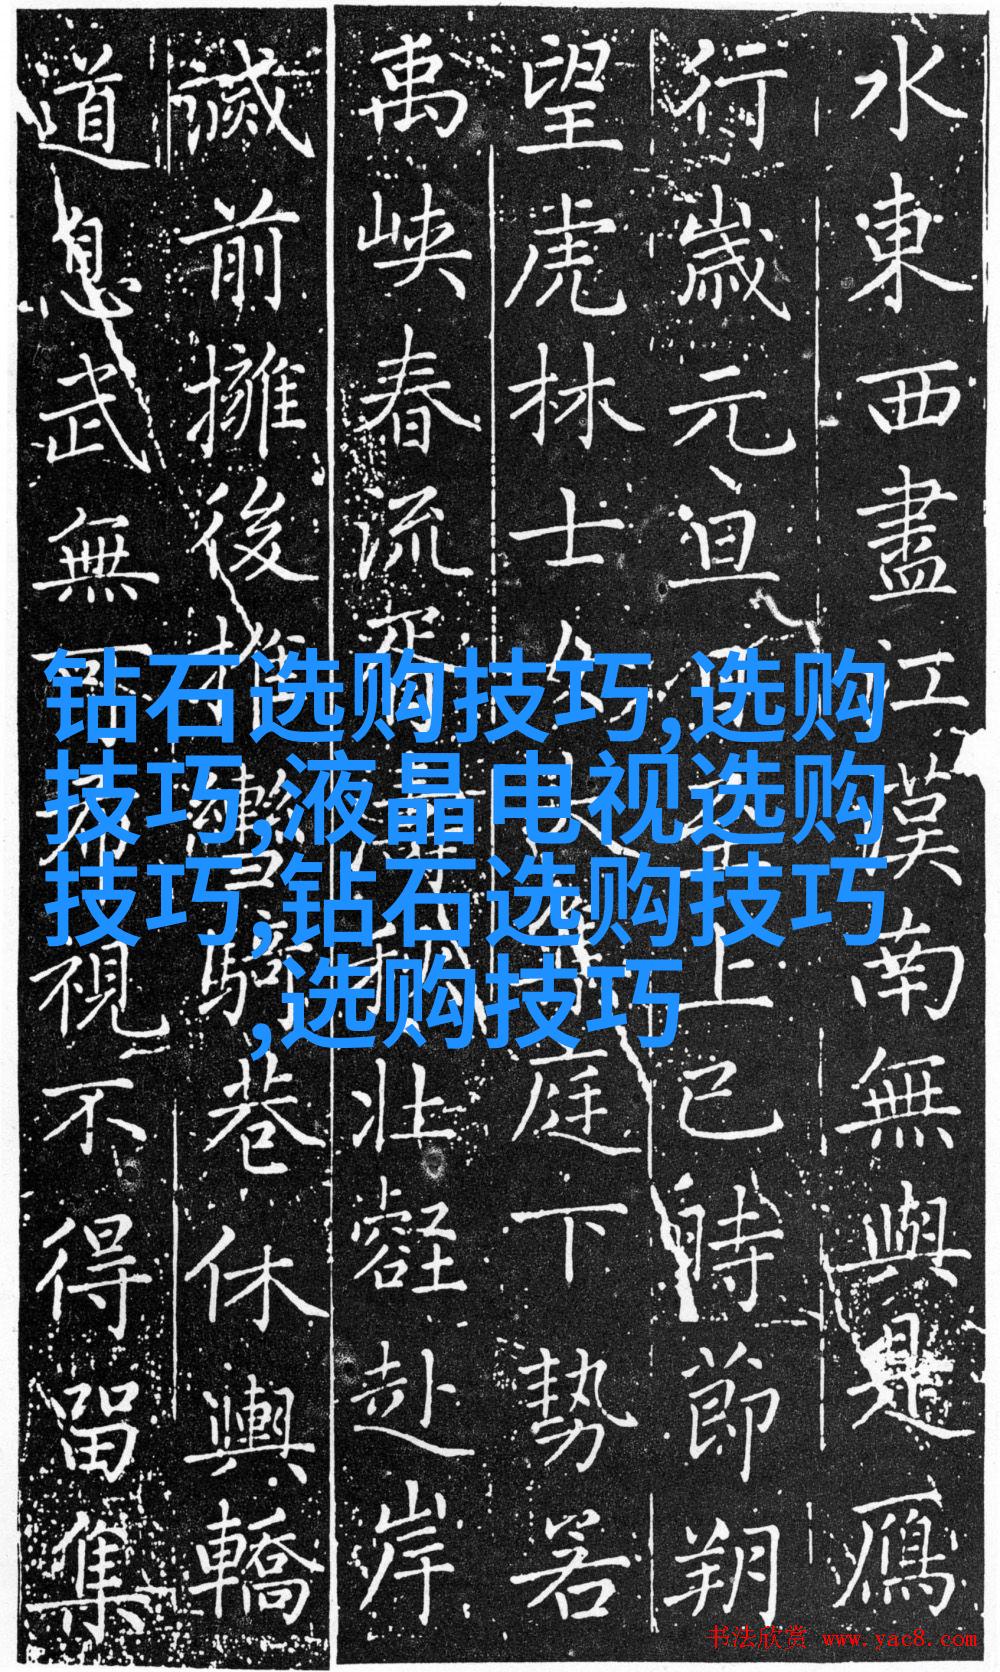 水東西盡江漢南無與是鴈
行歲元旦上巳時節朔
望虎林士庭下勢若
禹峽春流壯壑赴岸
滅前擁後推騎巷休輿轎
道息武無視不得留集
钻石选购技巧,选购
技巧,液晶电视选购
技巧,钻石选购技巧
,选购技巧
书法欣赏 www.yac8.com